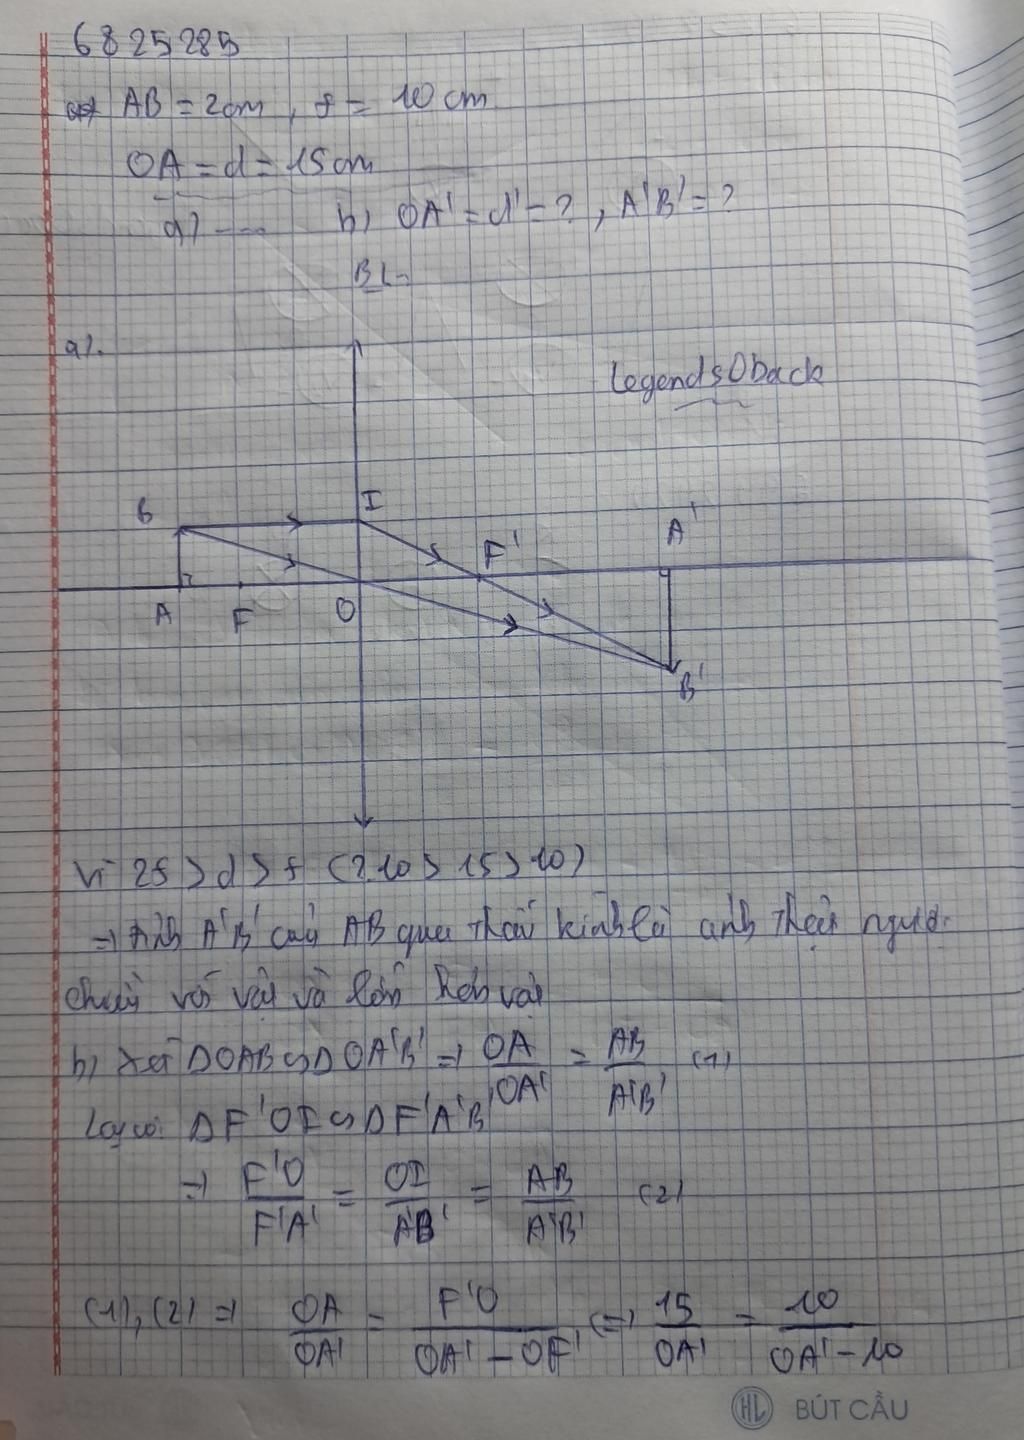 6825285
AB = 2cm, f = 10 cm
OA = d = 15cm
a) --- b) OA' = d' = ?, A'B' = ?
BL
a).
Legends0back
B I F' A'
A F O B'
Vì 2f > d > f (2.10 > 15 > 10)
=> Ảnh A'B' của AB qua thấu kính là ảnh thật ngược
chiều với vật và lớn hơn vật
b) Xét ΔOAB ∽ ΔOA'B' => OA/OA' = AB/A'B' (1)
Lại có: ΔF'OI ∽ ΔF'A'B'
=> F'O/F'A' = OI/A'B' = AB/A'B' (2)
(1), (2) => OA/OA' = F'O/OA' - OF' <=> 15/OA' = 10/OA' - 10
HL BÚT CẦU